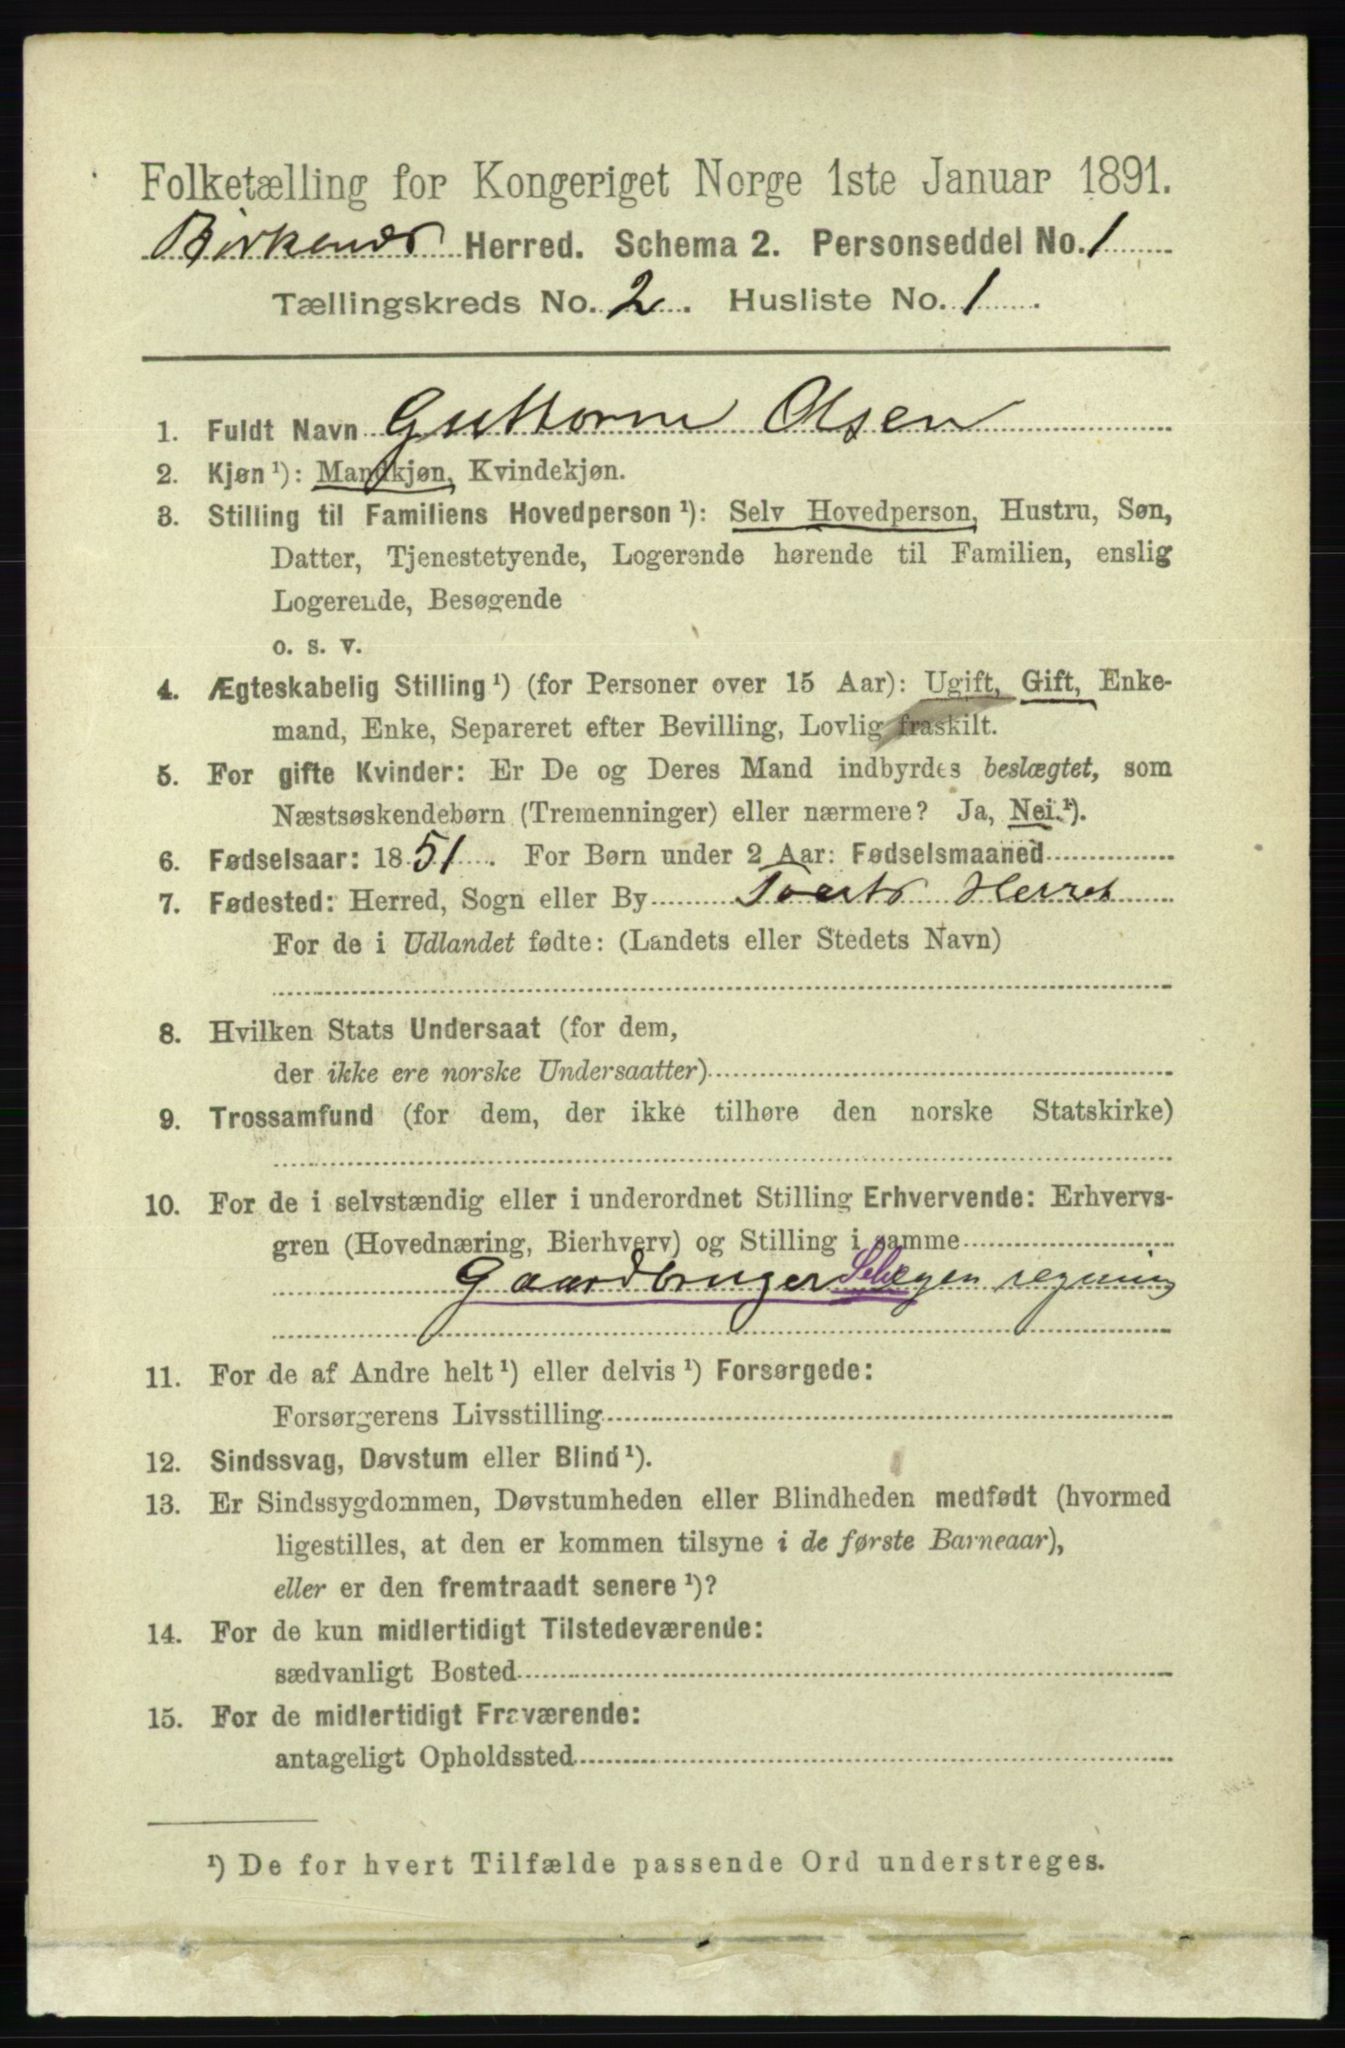 Folketælling for Kongeriget Norge 1ste Januar 1891.
Birkenes Herred. Schema 2. Personseddel No. 1
Tællingskreds No. 2. Husliste No. 1.
1. Fuldt Navn Guttorm Olsen
2. Kjøn ¹): Mandkjøn, Kvindekjøn.
3. Stilling til Familiens Hovedperson ¹): Selv Hovedperson, Hustru, Søn,
Datter, Tjenestetyende, Logerende hørende til Familien, enslig
Logerende, Besøgende
o. s. v.
4. Ægteskabelig Stilling ¹) (for Personer over 15 Aar): Ugift, Gift, Enke-
mand, Enke, Separeret efter Bevilling, Lovlig fraskilt.
5. For gifte Kvinder: Er De og Deres Mand indbyrdes beslægtet, som
Næstsøskendebørn (Tremenninger) eller nærmere? Ja, Nei. ¹).
6. Fødselsaar: 1851. For Børn under 2 Aar: Fødselsmaaned
7. Fødested: Herred, Sogn eller By Herred
For de i Udlandet fødte: (Landets eller Stedets Navn)
8. Hvilken Stats Undersaat (for dem,
der ikke ere norske Undersaatter)
9. Trossamfund (for dem, der ikke tilhøre den norske Statskirke)
10. For de i selvstændig eller i underordnet Stilling Erhvervende: Erhvervs-
gren (Hovednæring, Bierhverv) og Stilling i samme
Gaardbruger Selv egen regning
11. For de af Andre helt ¹) eller delvis ¹) Forsørgede:
Forsørgerens Livsstilling
12. Sindssvag, Døvstum eller Blind ¹).
13. Er Sindssygdommen, Døvstumheden eller Blindheden medfødt (hvormed
ligestilles, at den er kommen tilsyne i de første Barneaar),
eller er den fremtraadt senere ¹)?
14. For de kun midlertidigt Tilstedeværende:
sædvanligt Bosted
15. For de midlertidigt Fraværende:
antageligt Opholdssted
¹) De for hvert Tilfælde passende Ord understreges.